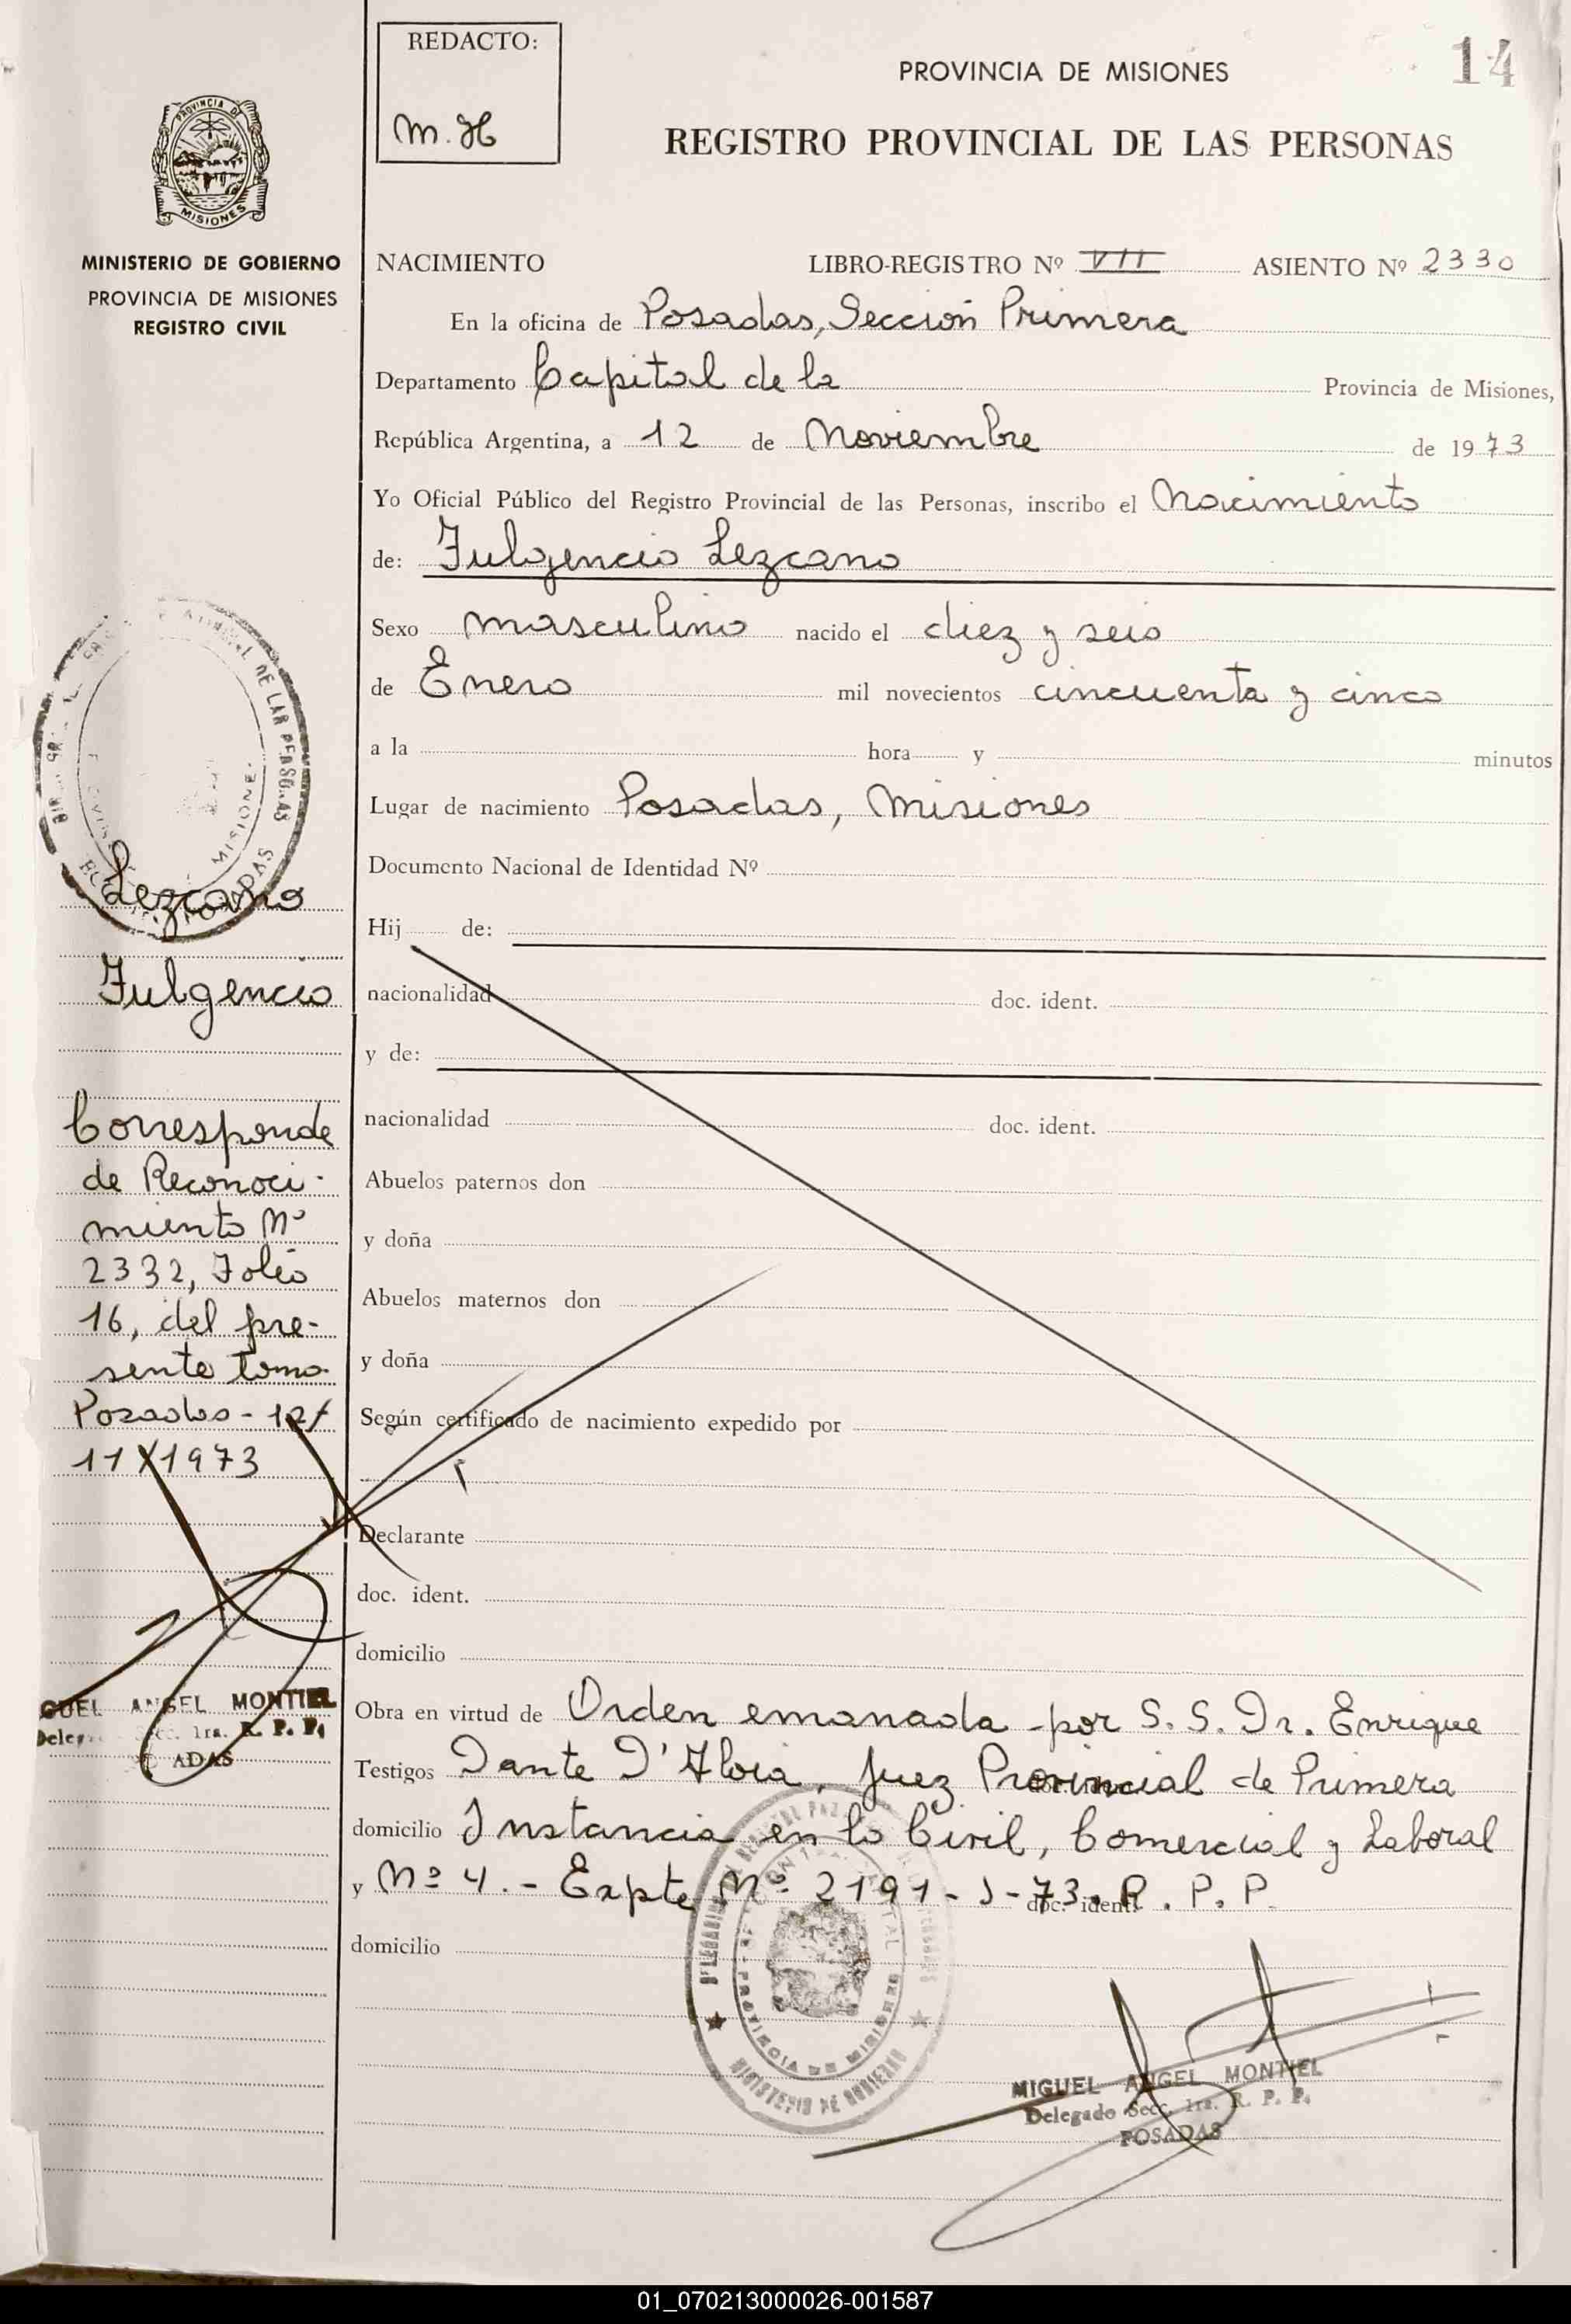 REDACTO:
M. H
PROVINCIA DE MISIONES
14
REGISTRO PROVINCIAL DE LAS PERSONAS
PROVINCIA DE MISIONES
MINISTERIO DE GOBIERNO
PROVINCIA DE MISIONES
REGISTRO CIVIL
NACIMIENTO LIBRO-REGISTRO Nº VII ASIENTO Nº 2330
En la oficina de Posadas, Sección Primera
Departamento Capital de la Provincia de Misiones,
República Argentina, a 12 de Noviembre de 1973
Yo Oficial Público del Registro Provincial de las Personas, inscribo el Nacimiento
de: Fulgencio Lezcano
Sexo masculino nacido el diez y seis
de Enero mil novecientos cincuenta y cinco
a la hora y minutos
Lugar de nacimiento Posadas, Misiones
Documento Nacional de Identidad Nº
Hij de:
nacionalidad doc. ident.
y de:
nacionalidad doc. ident.
Abuelos paternos don
y doña
Abuelos maternos don
y doña
Según certificado de nacimiento expedido por
Declarante
doc. ident.
domicilio
Obra en virtud de Orden emanada por S. S. Dr. Enrique
Testigos Dante D'Aloia, Juez Provincial de Primera
domicilio Instancia en lo Civil, Comercial y Laboral
y Nº 4.- Expte Nº 2191-J-73. R. P. P. doc. ident.
domicilio
MIGUEL ANGEL MONTIEL
Delegado Secc. 1ra. R. P. P.
POSADAS
PROVINCIA DE MISIONES
MINISTERIO DE GOBIERNO
DE LAS PERSONAS
Lezcano
Fulgencio
Corresponde
de Reconoci-
miento Nº
2332, Folio
16, del pre-
sente tomo
Posadas - 12/
11/1973
GUEL ANGEL MONTIEL
Deleg Secc. 1ra. R. P. P.
ADAS
01_070213000026-001587